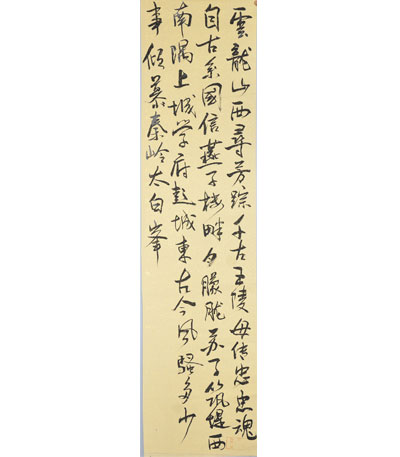 雲龍山西尋芳踪千古王陵母传忠忠魂
自古系國信燕子楼畔夕朦胧苏子筑堤西
南隅上城学府彭城東古今风騷多少
事倾慕秦岭太白峯